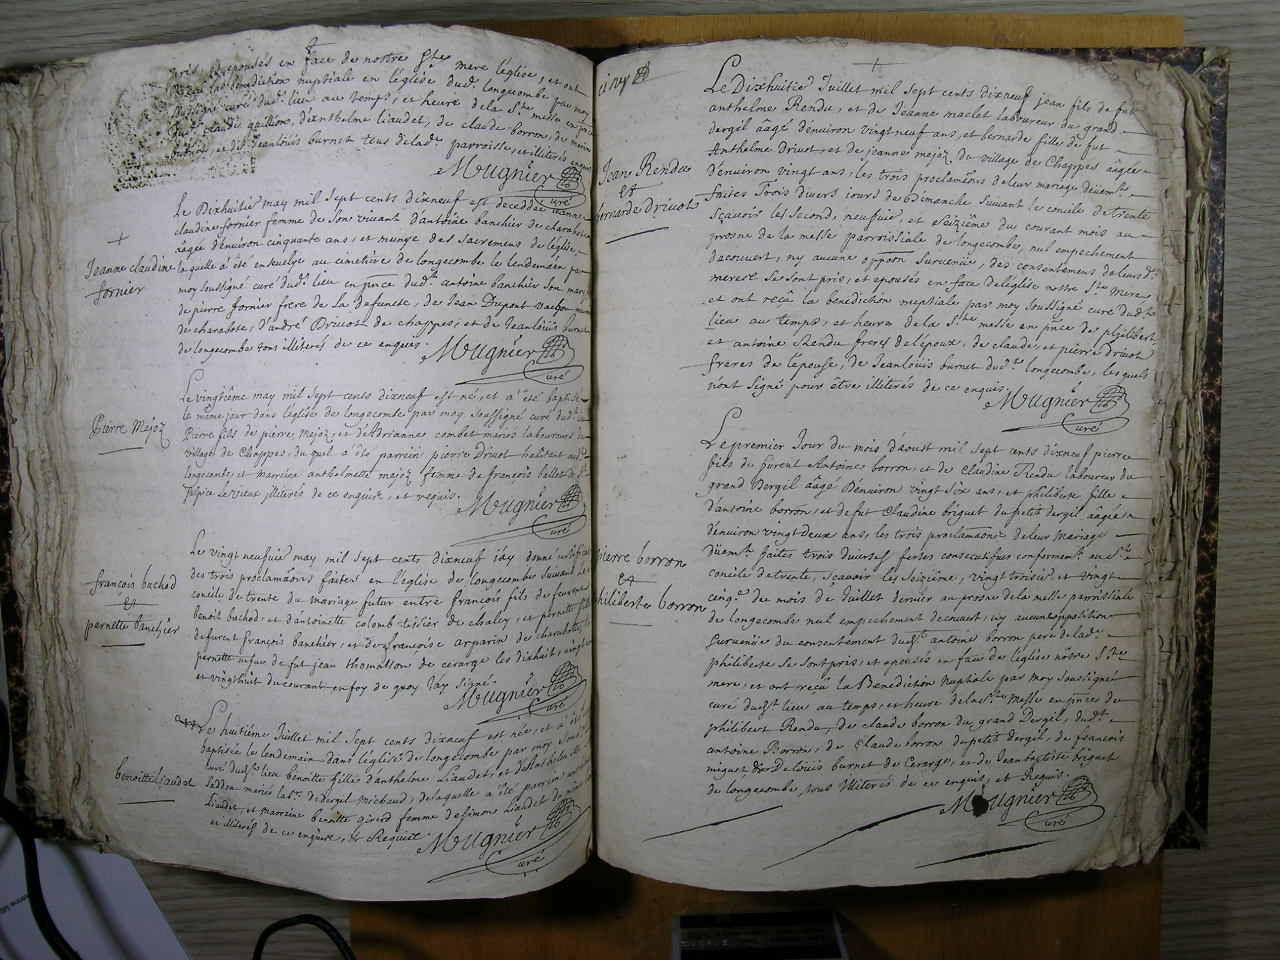 pris, et epousés en face de nostre Ste mere l'église, et ont
reçu la Bénédiction nuptiale en l'église dud. longecombe par moy
soussigné curé dud. lieu au temps, et heure de la Ste messe en pnce
de claude gaillon, d'anthelme liaudet, de claude borron, de
et de Jeanloüis burnet tous de lade parroisse, et illiterés enquis
Mugnier
curé
Jeanne claudine
fornier
Le Dixhuitie may mil sept cents dixneuf est deceddée jeanne
claudine fornier femme de son vivant d'antoine banchier de charabote
aagée d'environ cinquante ans, et munye des sacremens de l'église,
laquelle à été ensevelye au cimetiere de longecombe le lendemain, par
moy soussigné curé dud. lieu en pnce dud. antoine banchier son mary,
de pierre fornier frere de la defunte, de Jean Dupont
de charabote, d'andré Drivot de chappes, et de Jeanloüis burnet
de longecombe tous illiterés de ce enquis.
Mugnier
curé
Pierre Mejoz
Le vingtiême may mil sept cents dixneuf est né, et à été baptisé
le même jour dans l'église de longecombe par moy soussigné curé dud. lieu
Pierre fils de pierre Mejoz, et d'Adrianne combet mariés laboureurs du
village de Chappes, duquel a été parrein pierre Drivot habitant aud.
longecombe, et marreine anthelmette mejoz femme de françois ballet de St
sulpice le vieux illiterés de ce enquise, et requis.
Mugnier
curé
françois bachod
et
pernette banchier
Le vingt neufuie may mil sept cents dixneuf i'ay donné certificat
des trois proclamaons faites en l'église de longecombe suivant le
concile de trente du mariage futur entre françois fils de feu
benoit bachod et d'antoinette colomb tissier de chaley, et pernette fille
de furent françois banchier, et de françoise arparin de charabotte,
pernette vefue de fut jean thomasson de cerarge les dixhuit, vingt
et vingthuit du courant en foy de quoy i'ay signé.
Mugnier
curé
benoitte Liaudet
Le huitiéme Juillet mil sept cents dixneuf est née, et à été
baptisée le lendemain dans l'église de longecombe par moy soussigné
curé dudt lieu benoitte fille d'anthelme Liaudet, et d'Anthelmette
Seddon mariés labrs de dergil michaud, de laquelle a été parrein
Liaudet, et marreine benoitte girerd femme de simon Liaudet du même
et illiterés de ce enquise, et Requise.
Mugnier
curé
Jean Rendu
et
bernarde Drivot
Le Dixhuitie Juillet mil sept cents dixneuf jean fils de fut
anthelme Rendu, et de Jeanne maclet laboureur du grand
dergil âagé d'environ vingt neuf ans, et bernarde fille de fut
Anthelme Drivot, et de jeanne mejoz du village de Chappes âagée
d'environ vingt ans, les trois proclamaons de leur mariage düemt
faites Trois divers jours de Dimanche suivant le concile de trente
sçavoir les second, neufuie, et seiziême du courant mois au
prosne de la messe parroissiale de longecombe, nul empechement
decouvert, ny aucune oppoon survenüe, des consentements de leurs dt
meres se sont pris, et epousés en face de l'église notre Ste Mere
et ont reçu la bénédiction nuptiale par moy soussigné curé dudt
lieu au temps, et heure de la Ste messe en pnce de philibert,
et antoine Rendu freres de l'epoux, de claude, et pierre drivot
freres de l'épouse, de Jeanloüis burnet dudt longecombe, lesquels
n'ont signé pour être illiterés de ce enquis.
Mugnier
curé
pierre borron
et
philiberte borron
Le premier Jour du mois d'aoust mil sept cents dixneuf pierre
fils de furent Antoine borron, et de claudine Rendu laboureur du
grand Dergil âagé d'environ vingt six ans, et philiberte fille
d'antoine borron, et de fut Claudine briguet du petit dergil âagée
d'environ vingt deux ans, les trois proclamaons de leur mariage
düemt faites trois diverses festes consecutifues conformemt au St
concile de trente, sçavoir les seiziême, vingt troisie, et vingt
cinqe du mois de Juillet dernier au prosne de la messe parroissiale
de longecombe nul empechement decouvert, ny aucun opposition
survenüe du consentement dudt antoine borron pere de lade
philiberte se sont pris, et epousés en face de l'église nôtre Ste
mere, et ont reçu la Benediction nuptiale par moy soussigné
curé dudt lieu au temps, et heure de la Ste Messe en pnce de
philibert Rendu, de claude borron du grand Dergil, dudt
antoine Borron, de Claude borron du petit dergil, de françois
miguet de Loüis burnet de Cerarge, et de Jeanbaptiste briguet
de longecombe, tous illiterés de ce enquis, et Requis.
Mugnier
curé